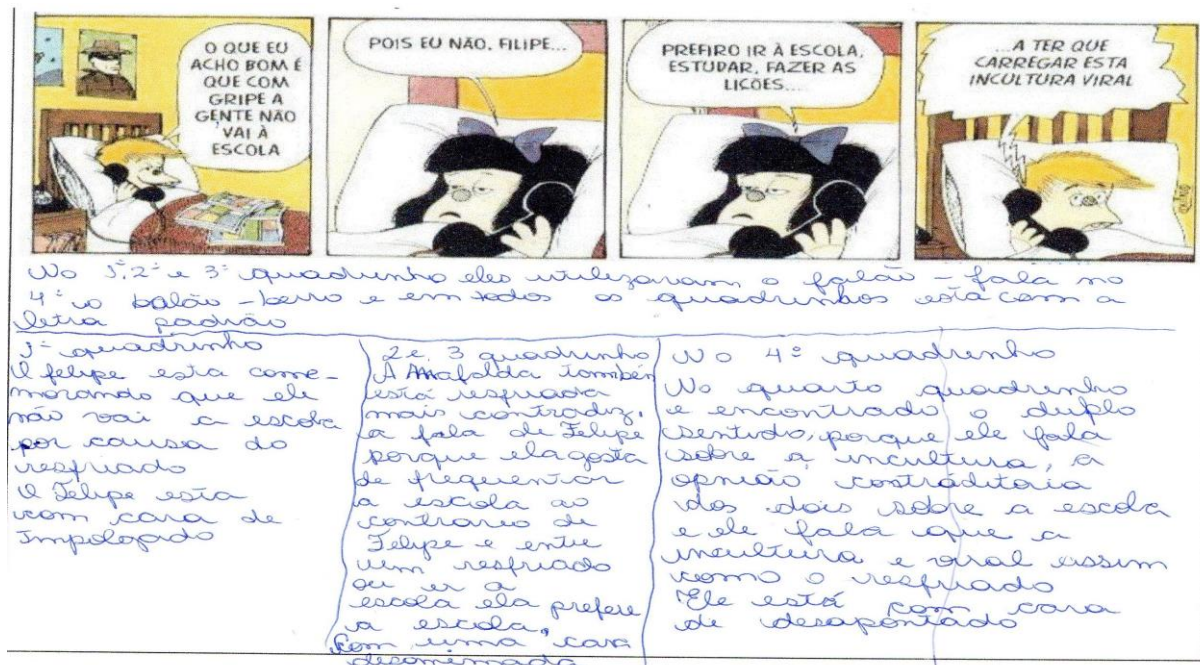 O QUE EU
ACHO BOM É
QUE COM
GRIPE A
GENTE NÃO
VAI À
ESCOLA
POIS EU NÃO, FILIPE...
PREFIRO IR À ESCOLA,
ESTUDAR, FAZER AS
LICÕES...
...A TER QUE
CARREGAR ESTA
INCULTURA VIRAL
No 1º, 2º e 3º quadrinho eles utilizaram o falão - fala no
4º o balão - berro e em todos os quadrinhos está com a
letra padrão
1º quadrinho
O felipe esta come-
morando que ele
não vai a escola
por causa do
resfriado
O Felipe esta
com cara de
Impologado
2 e 3 quadrinho
A Mafalda também
está resfriada
mais contradiz,
a fala de Felipe
porque ela gosta
de frequentar
a escola ao
contrario de
Felipe e entre
um resfriado
ou er a
escola ela prefere
a escola,
com uma cara
desanimada
No 4º quadrinho
No quarto quadrinho
e encontrado o duplo
sentido, porque ele fala
sobre a incultura, a
opnião contráditaia
dos dois sobre a escola
e ele fala que a
incultura e viral assim
como o resfriado
Ele está com cara
de desapontado